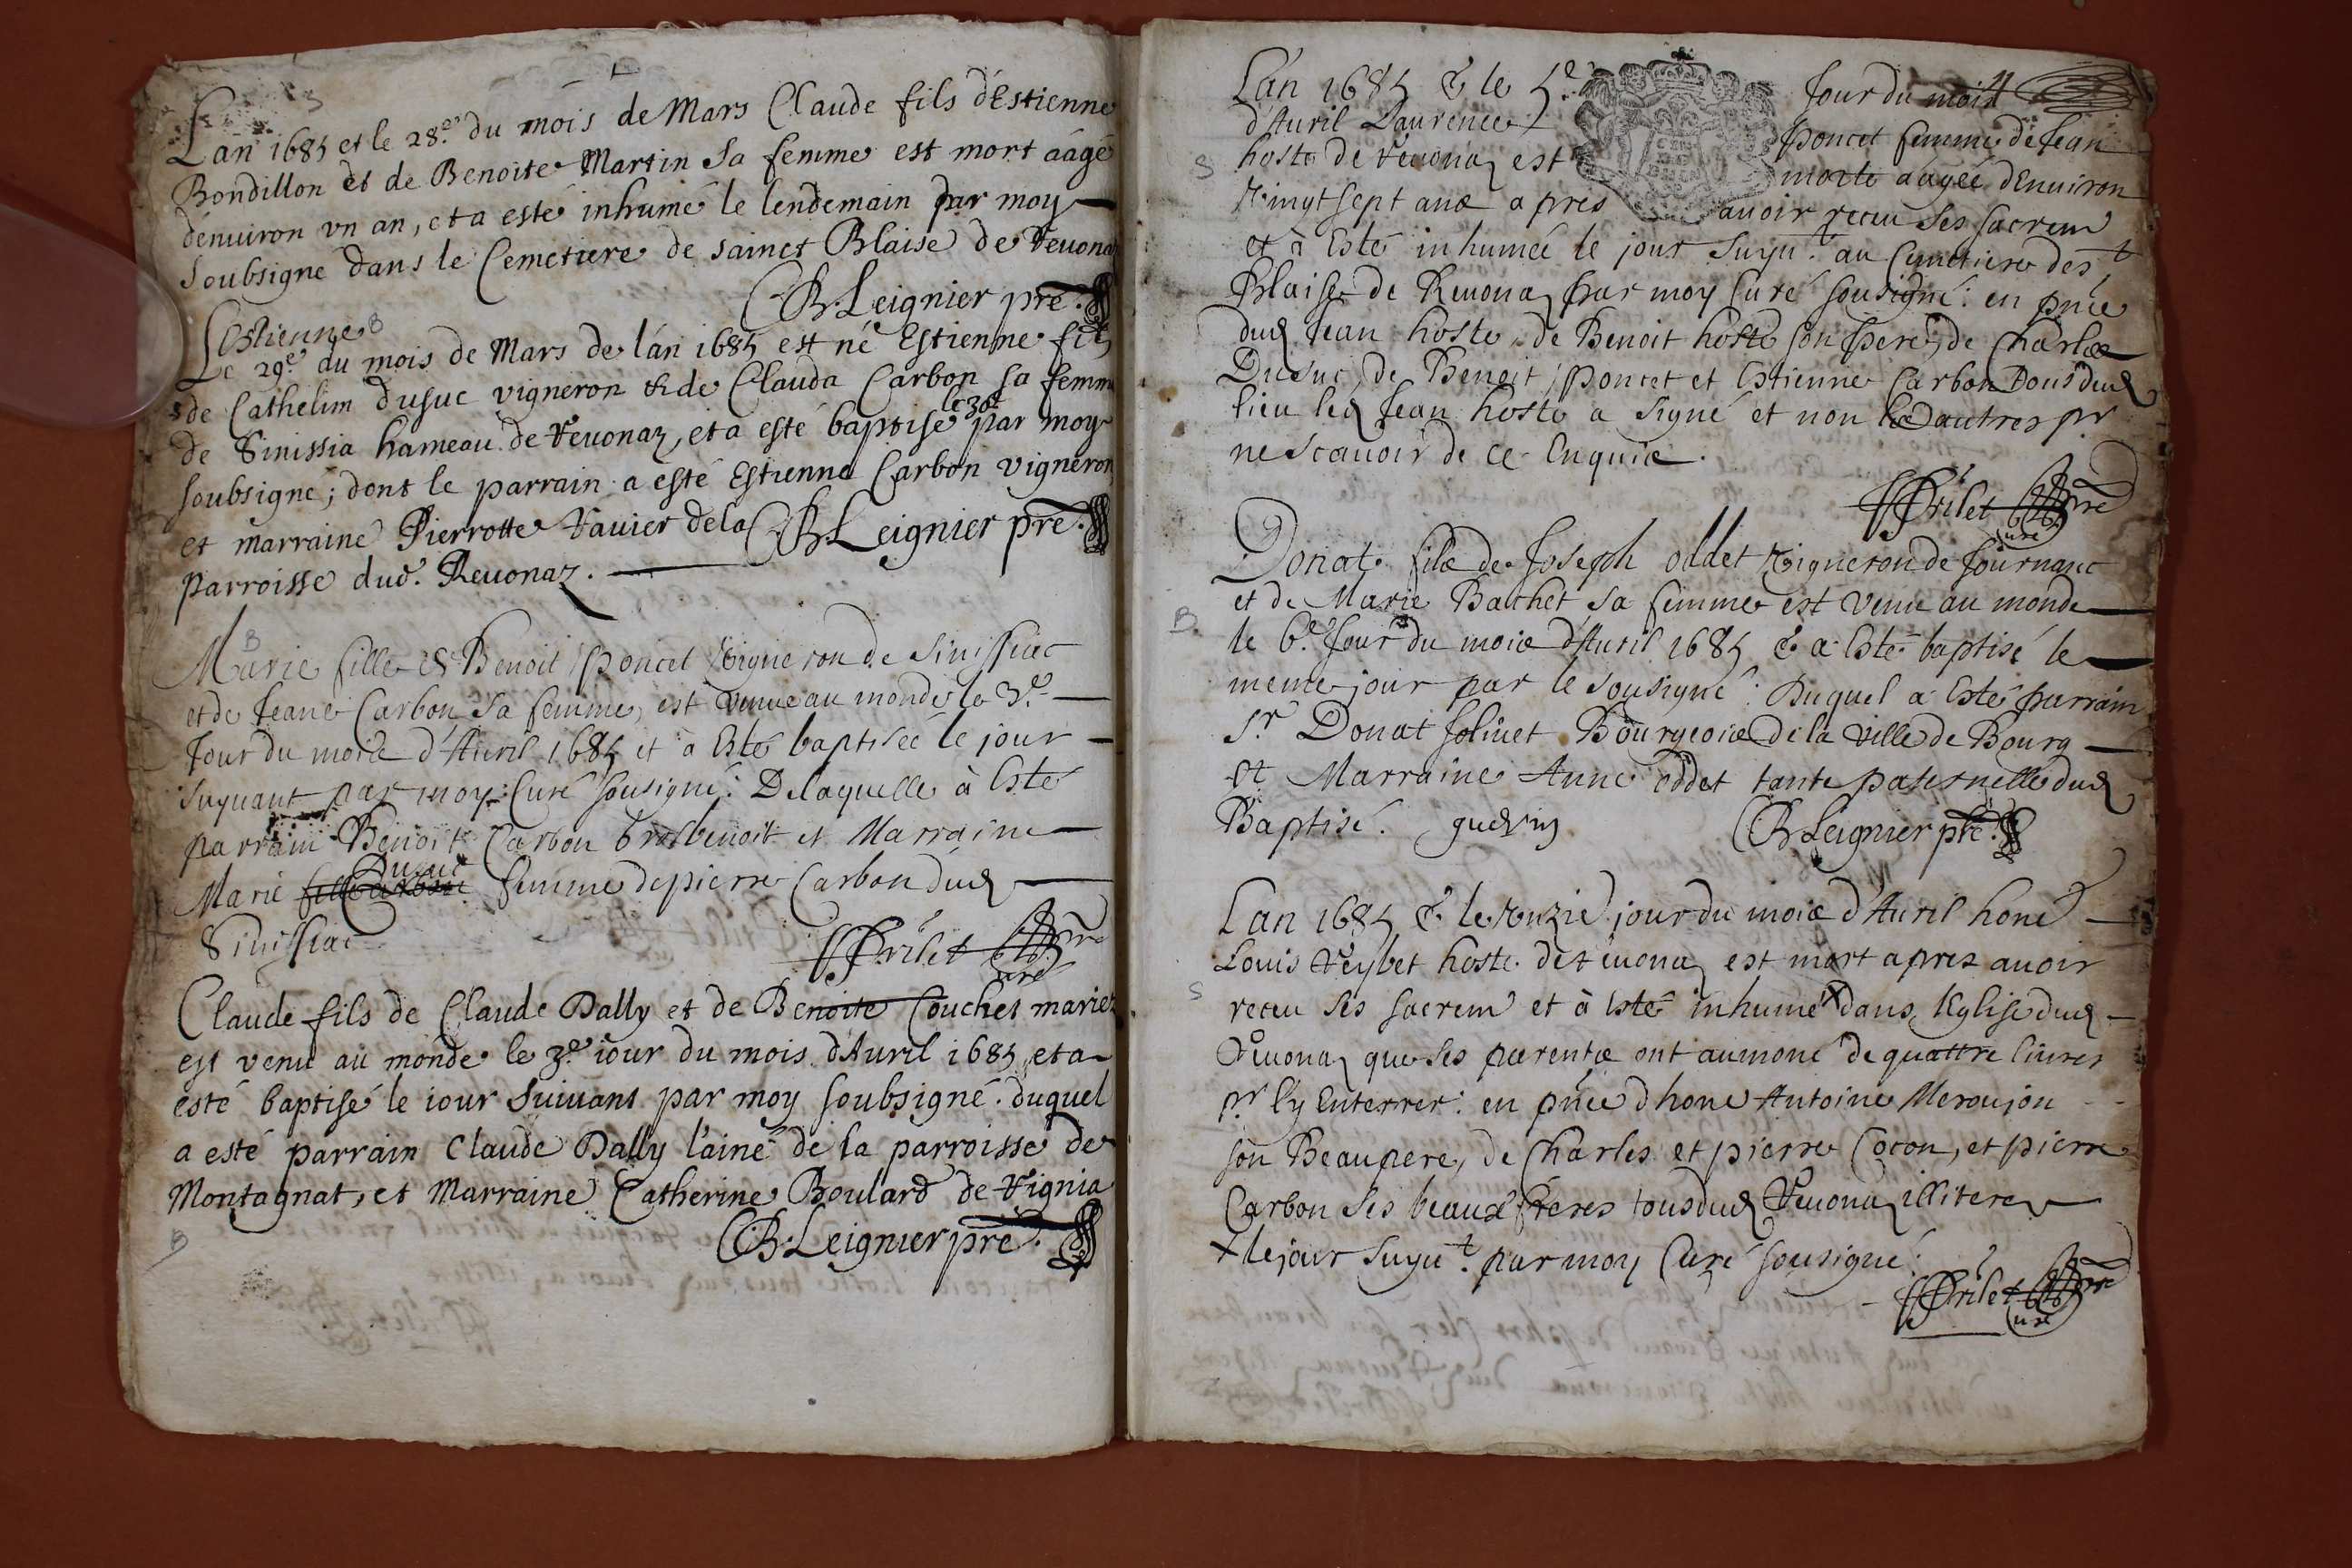 Lan 1685 et le 28.e du mois de Mars Claude fils d'Estienne
Bondillon et de Benoite Martin sa femme est mort aâgé
d'enuiron vn an, et a esté inhumé le lendemain par moy
soubsigne dans le Cemetiere de sainct Blaise de Reuonaz
B. Leignier pre.
Estienne
Le 29.e du mois de Mars de l'an 1685 est né Estienne fils
de Cathelim dusuc vigneron & de Clauda Carbon sa femme
le 30e
de Sinissia hameau de Reuonaz, et a esté baptisé par moy
soubsigne; dont le parrain a esté Estienne Carbon vigneron
et marraine Pierrotte Vauier de la
B. Leignier pre.
parroisse dud. Reuonaz.
Marie fille de Benoit poncet vigneron de Sinissiac
et de Jeane Carbon sa femme, est venue au monde le 3.e
Jour du mois d'Auril 1685 et à Esté baptisée le jour
suyuant par moy Curé sousigné: De laquelle à Esté
parrain Benoit Carbon benoit et Marraine
Dusuc
Marie femme de pierre Carbon dud
Sinissiac
Prilet pre
Curé
Claude fils de Claude Dally et de Benoite Couchet mariez
est venu au monde le 3.e iour du mois d'Auril 1685, et a
esté baptisé le iour suiuant par moy soubsigné. duquel
a esté parrain Claude Dally l'ainé de la parroisse de
Montagnat, et Marraine Catherine Boulard de Vignia
B. Leignier pre.
L'an 1685 & le 5.e Jour du mois
d'Auril Laurence poncet femme de Jean
hoste de Reuonaz est morte aâgée d'Enuiron
vingt sept ans apres auoir receu ses sacrem
et à Esté inhumée le jour suyu.t au Cimetiere de St
Blaise de Reuonaz par moy Curé sousigné: en pnce
dud Jean hoste, de Benoit hoste son pere, de Charles
Dusuc, de Benoit poncet et Estienne Carbon tous dud
lieu led Jean hoste a signé et non les autres pr
ne scauoir de ce Enquis.
Prilet pre
Curé
Donat fils de Joseph oddet vigneron de Journanc
et de Marie Bachet sa femme est venu au monde
le 6.e Jour du mois d'Auril 1685 & a Esté baptisé le
meme jour par le sousigné: Duquel a Esté parrain
Sr. Donat Joliuet Bourgeois de la ville de Bourg
et Marraine Anne oddet tante paternelle dud
Baptisé.
B. Leignier pre.
Lan 1685 & le onzie jour du mois d'Auril honé
Louis Veybet hoste de Reuonaz est mort apres auoir
receu ses sacrem et à Esté inhumé x dans l'Eglise dud
Reuonaz que ses parents ont aumoné de quattre liures
pr l'y Enterrer: en pnce d'hone Antoine Meroujon
son Beaupere, de Charles et pierre Cocon, et pierre
Carbon ses beaux freres tous dud Reuonaz illiteres
x le jour suyu.t par moy Curé sousigné:
Prilet pre
Curé